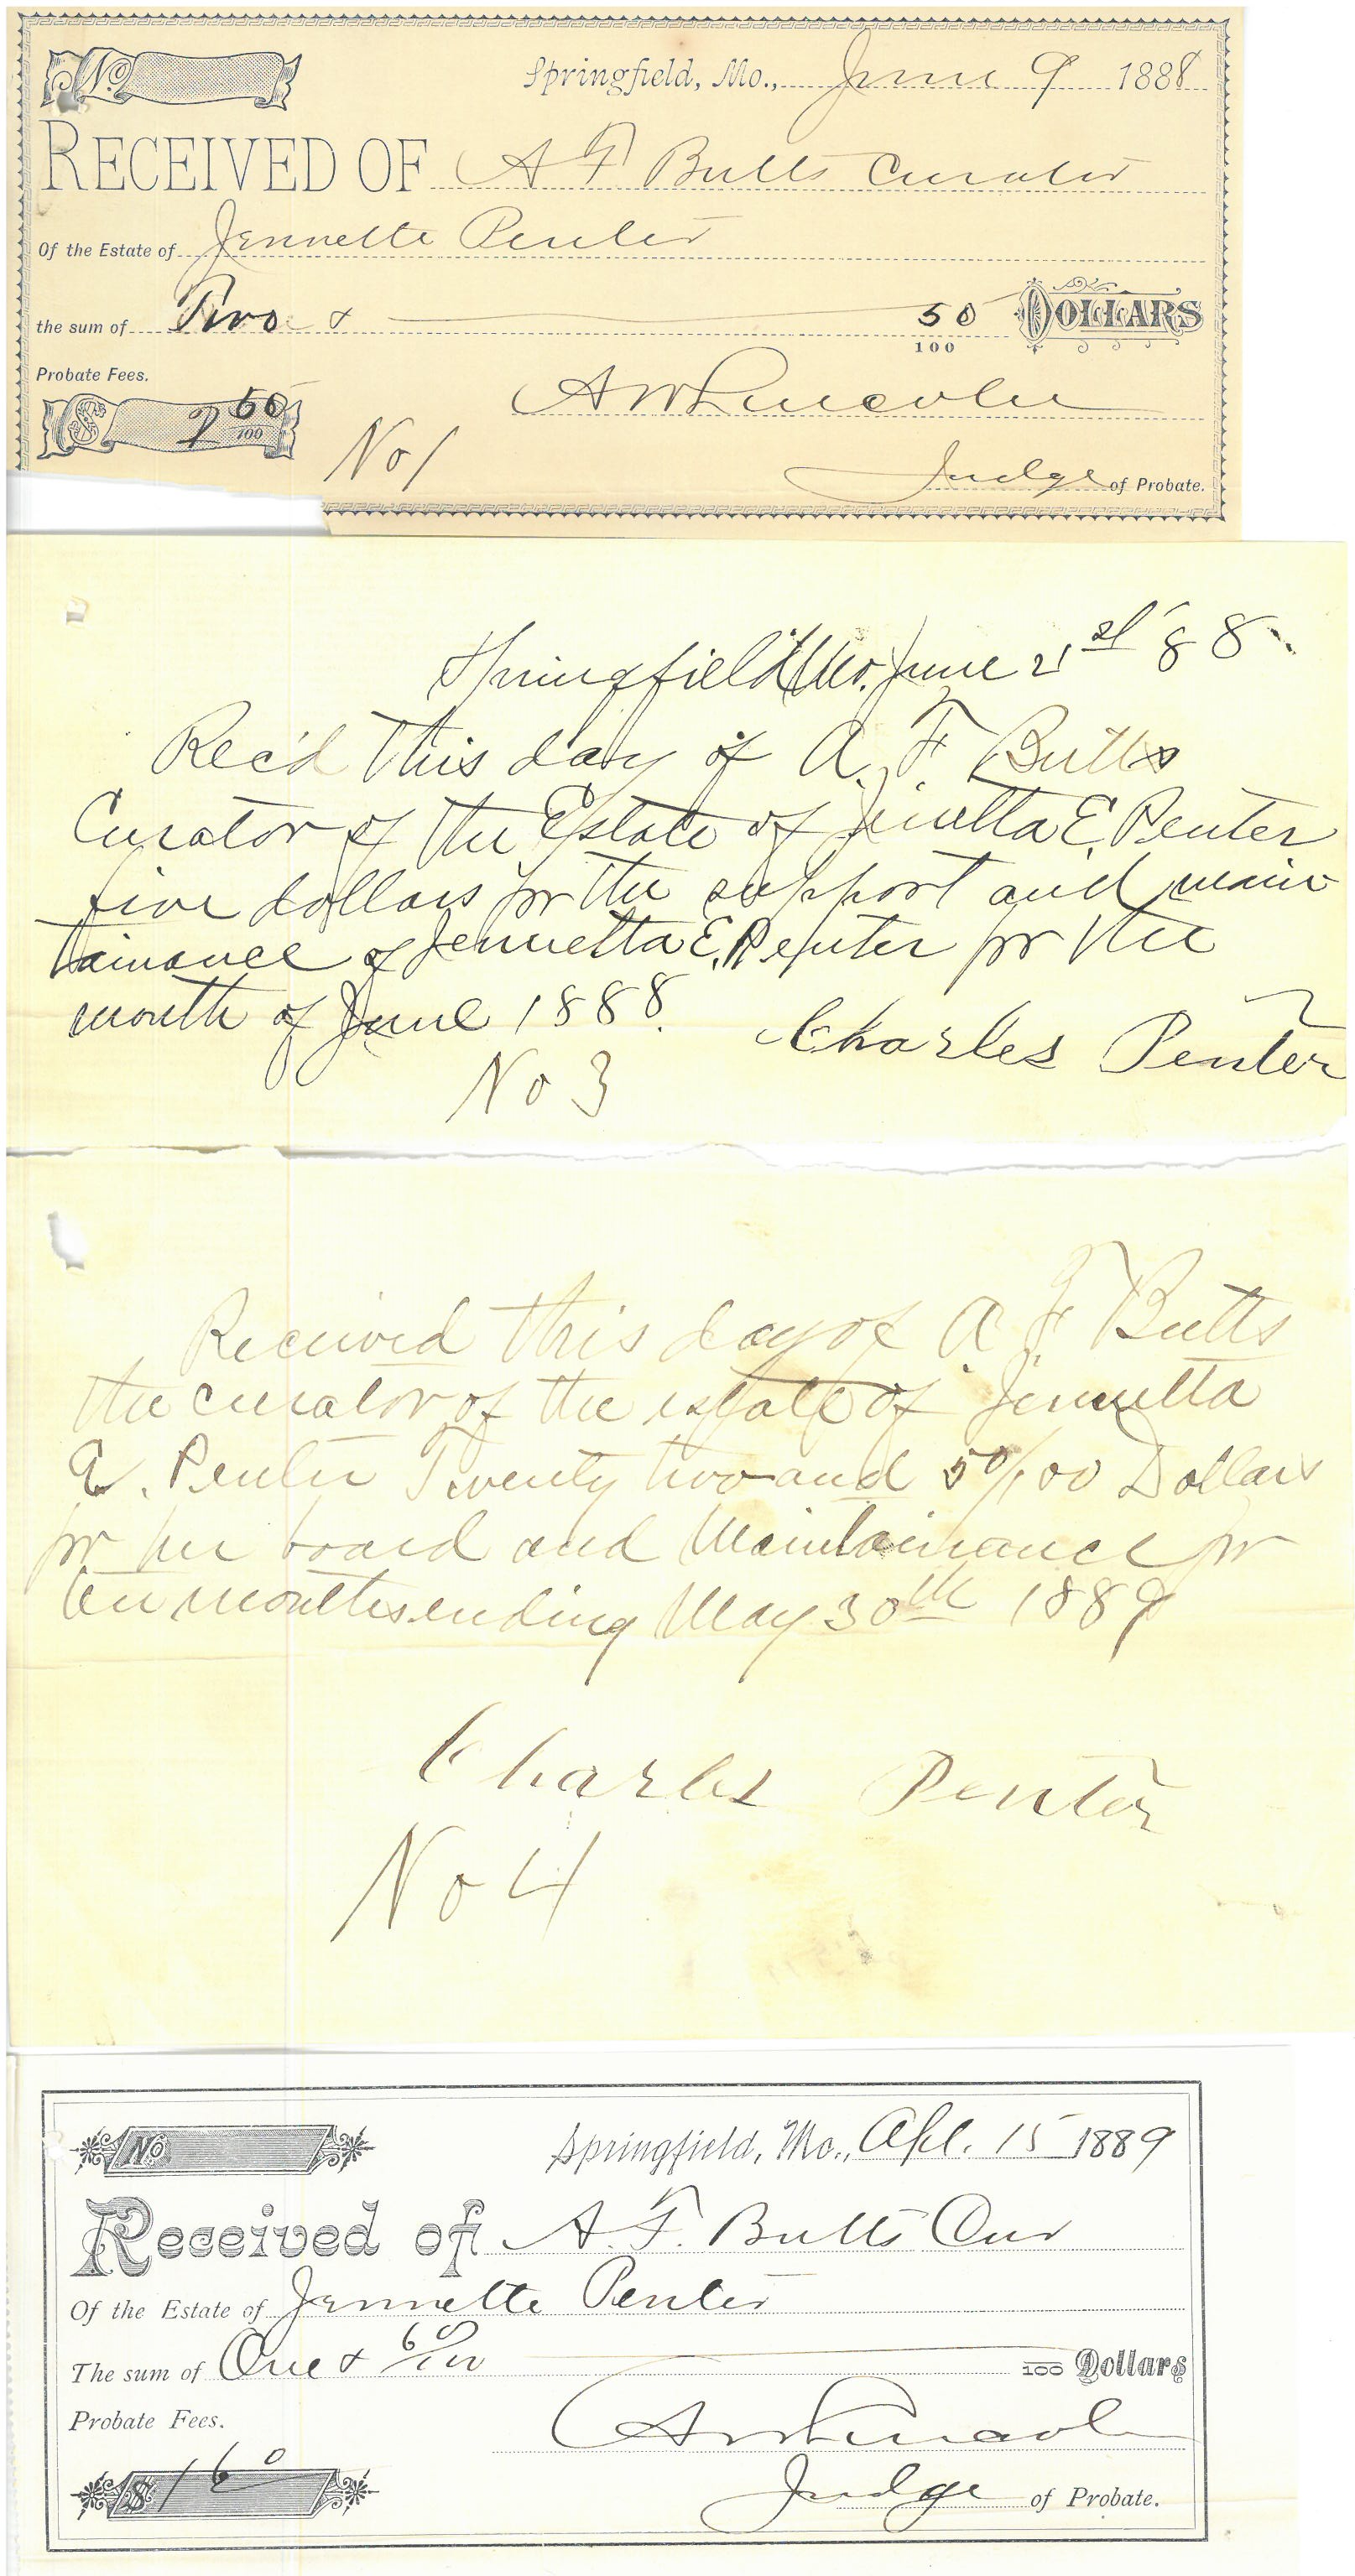 No
Springfield, Mo., June 9 1888
RECEIVED OF A F Butts Curator
Of the Estate of Jennette Penter
the sum of Two & 50/100 DOLLARS
Probate Fees.
$ 2 50/100
A W Lincoln
No 1
Judge of Probate.
Springfield Mo. June 21st 88
Rec'd this day of A. F. Butts
Curator of the Estate of Jenetta E. Penter
five dollars for the support and main
tainance of Jennetta E. Penter for the
month of June 1888.
Charles Penter
No 3
Received this day of A. F. Butts
the curator of the estate of Jennetta
E. Penter Twenty two and 50/100 Dollars
for her board and Maintainance for
ten months ending May 30th 1889
Charles Penter
No 4
No
Springfield, Mo., Apl. 15 1889
Received of A. F. Butts Cur
Of the Estate of Jennette Penter
The sum of One & 60/100 100 Dollars
Probate Fees.
$ 1 60
A W Lincoln
Judge of Probate.